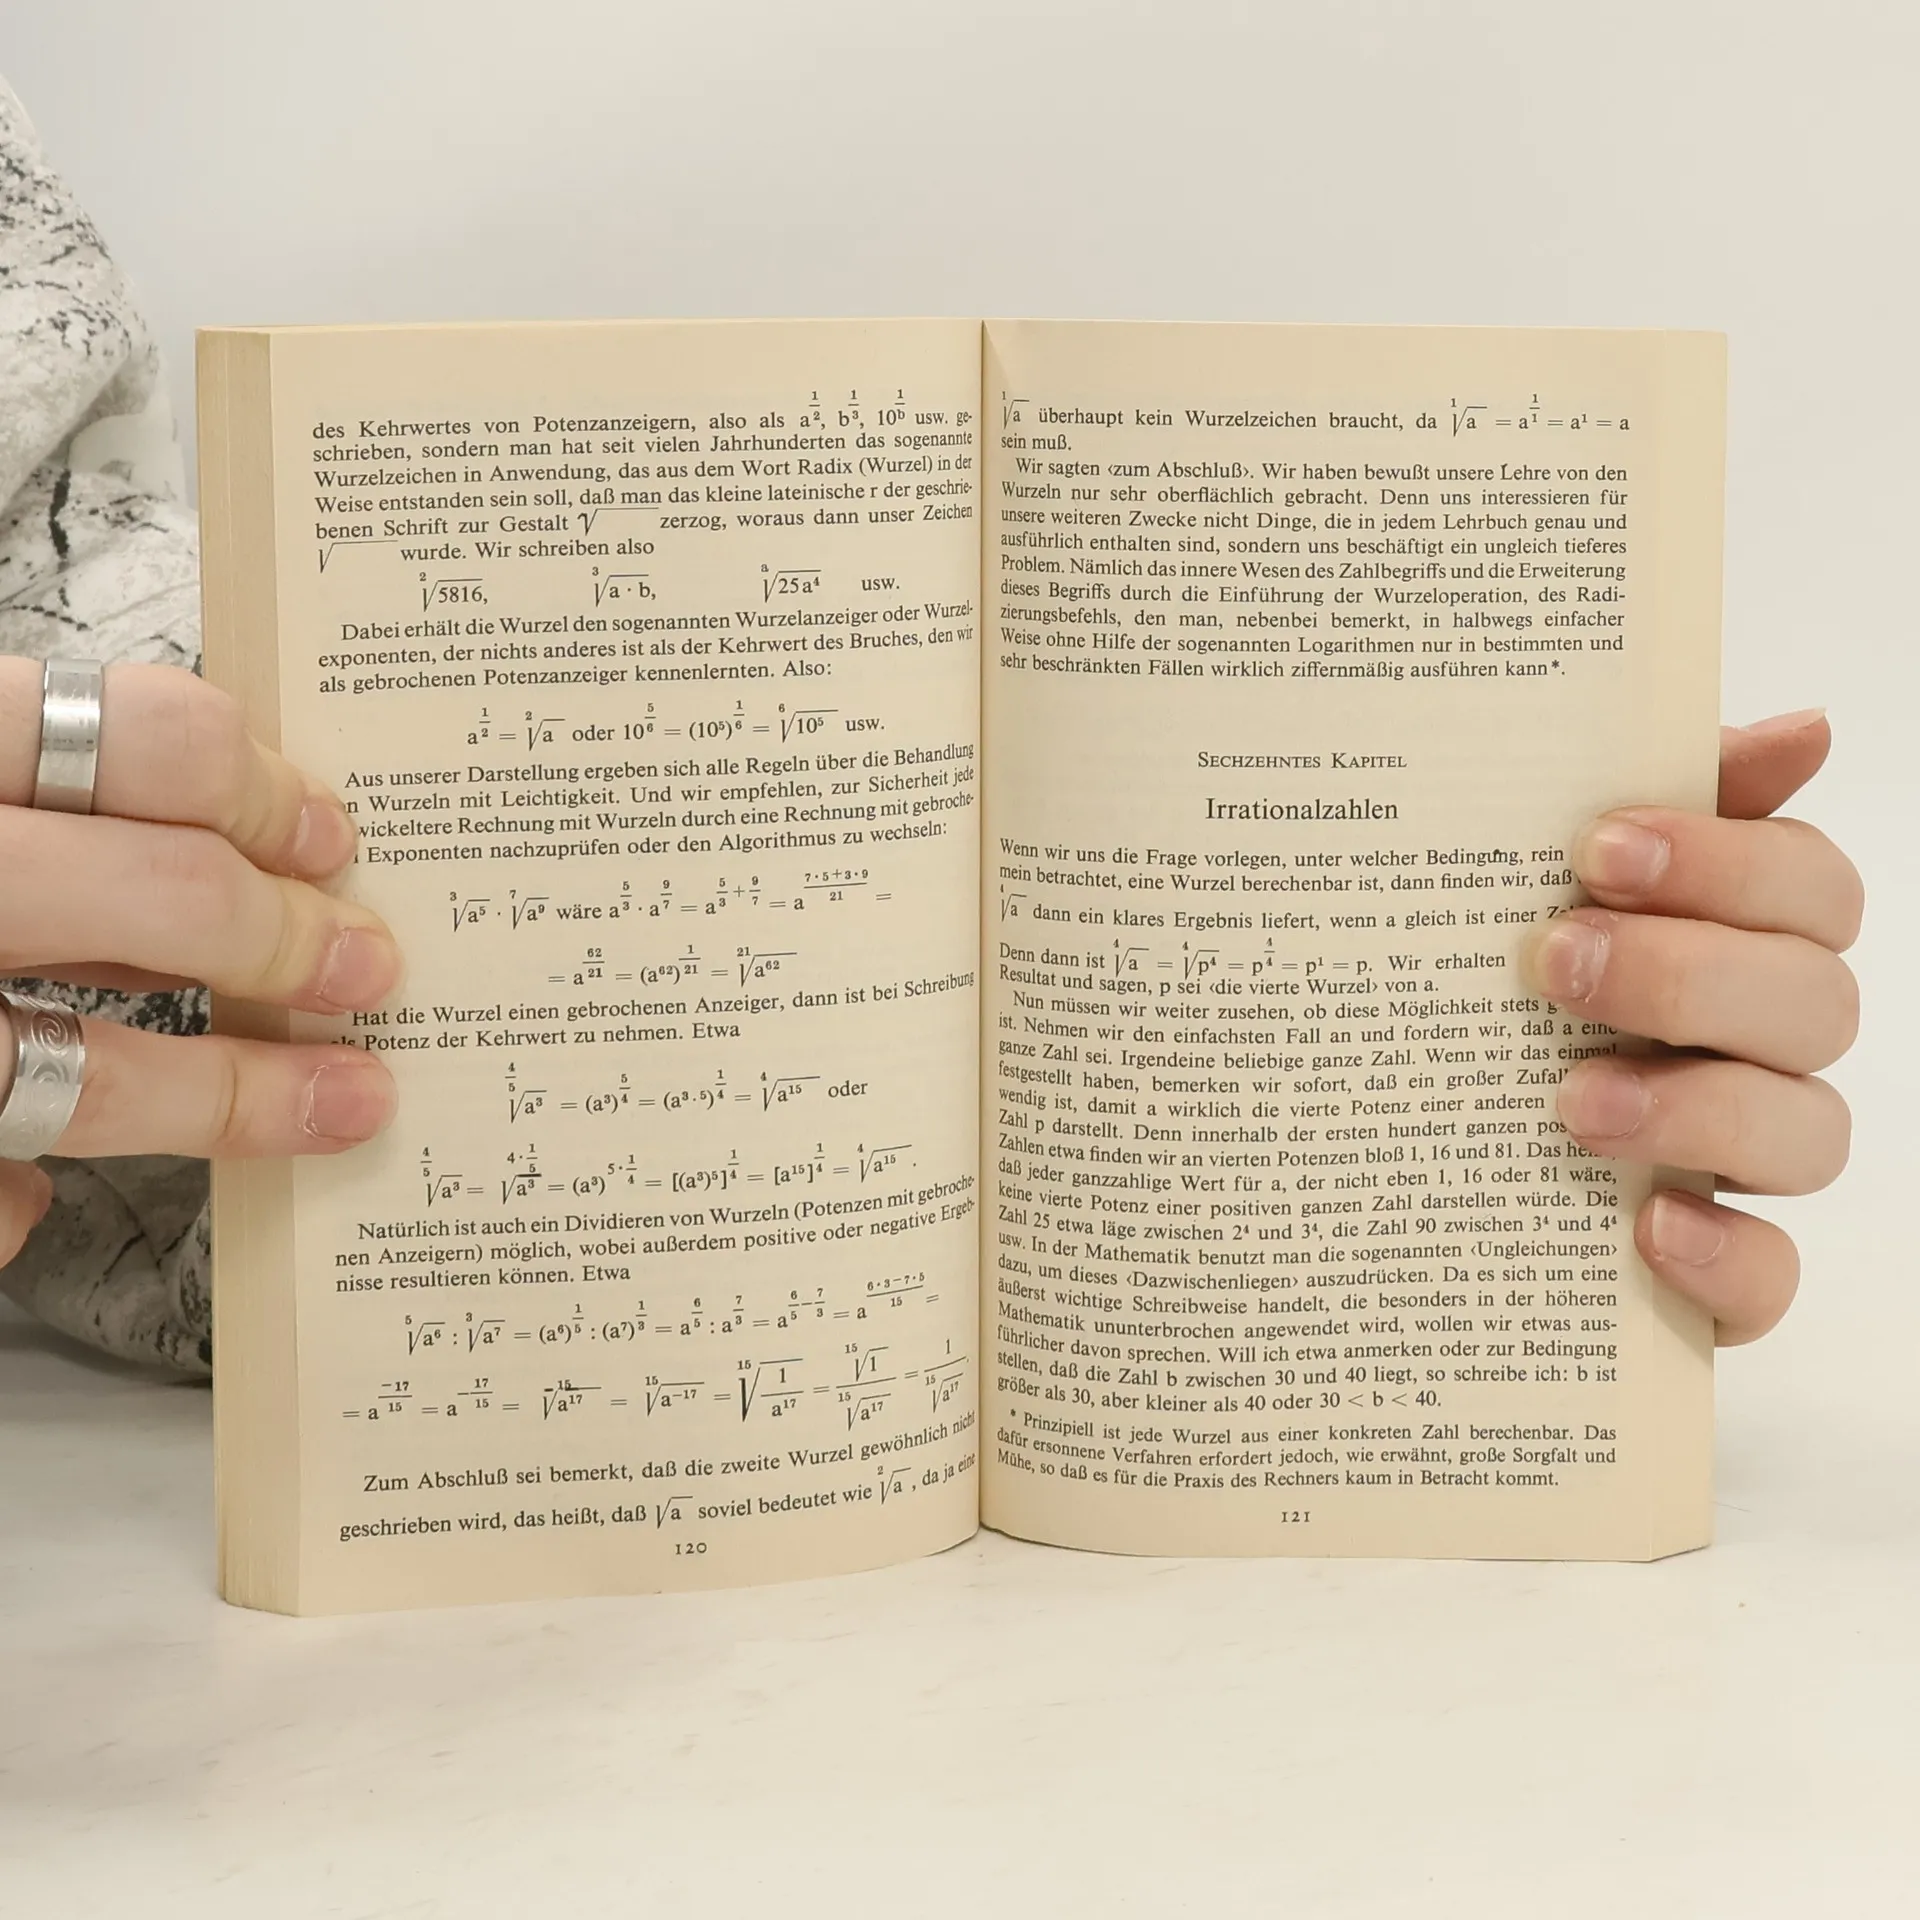 des Kehrwertes von Potenzanzeigern, also als a^(1/2), b^(1/3), 10^(1/b) usw. ge-
schrieben, sondern man hat seit vielen Jahrhunderten das sogenannte
Wurzelzeichen in Anwendung, das aus dem Wort Radix (Wurzel) in der
Weise entstanden sein soll, daß man das kleine lateinische r der geschrie-
benen Schrift zur Gestalt √ zerzog, woraus dann unser Zeichen
√ wurde. Wir schreiben also
²√5816, ³√a · b, ᵃ√25a⁴ usw.
Dabei erhält die Wurzel den sogenannten Wurzelanzeiger oder Wurzel-
exponenten, der nichts anderes ist als der Kehrwert des Bruches, den wir
als gebrochenen Potenzanzeiger kennenlernten. Also:
a^(1/2) = ²√a oder 10^(5/6) = (10⁵)^(1/6) = ⁶√10⁵ usw.
Aus unserer Darstellung ergeben sich alle Regeln über die Behandlung
n Wurzeln mit Leichtigkeit. Und wir empfehlen, zur Sicherheit jede
wickeltere Rechnung mit Wurzeln durch eine Rechnung mit gebroche-
Exponenten nachzuprüfen oder den Algorithmus zu wechseln:
³√a⁵ · ⁷√a⁹ wäre a^(5/3) · a^(9/7) = a^(5/3 + 9/7) = a^((7·5+3·9)/21) =
= a^(62/21) = (a⁶²)^(1/21) = ²¹√a⁶²
Hat die Wurzel einen gebrochenen Anzeiger, dann ist bei Schreibung
als Potenz der Kehrwert zu nehmen. Etwa
^(4/5)√a³ = (a³)^(5/4) = (a^(3·5))^(1/4) = ⁴√a¹⁵ oder
^(4/5)√a³ = ^(4·1/5)√a³ = (a³)^(5·1/4) = [(a³)⁵]^(1/4) = [a¹⁵]^(1/4) = ⁴√a¹⁵.
Natürlich ist auch ein Dividieren von Wurzeln (Potenzen mit gebroche-
nen Anzeigern) möglich, wobei außerdem positive oder negative Ergeb-
nisse resultieren können. Etwa
⁵√a⁶ : ³√a⁷ = (a⁶)^(1/5) : (a⁷)^(1/3) = a^(6/5) : a^(7/3) = a^(6/5 − 7/3) = a^((6·3−7·5)/15) =
= a^(−17/15) = a^(−17/15) = ^(−15)√a¹⁷ = ¹⁵√a⁻¹⁷ = ¹⁵√(1/a¹⁷) = ¹⁵√1 / ¹⁵√a¹⁷ = 1 / ¹⁵√a¹⁷.
Zum Abschluß sei bemerkt, daß die zweite Wurzel gewöhnlich nicht
geschrieben wird, das heißt, daß √a soviel bedeutet wie ²√a, da ja eine
120
¹√a überhaupt kein Wurzelzeichen braucht, da ¹√a = a^(1/1) = a¹ = a
sein muß.
Wir sagten ‹zum Abschluß›. Wir haben bewußt unsere Lehre von den
Wurzeln nur sehr oberflächlich gebracht. Denn uns interessieren für
unsere weiteren Zwecke nicht Dinge, die in jedem Lehrbuch genau und
ausführlich enthalten sind, sondern uns beschäftigt ein ungleich tieferes
Problem. Nämlich das innere Wesen des Zahlbegriffs und die Erweiterung
dieses Begriffs durch die Einführung der Wurzeloperation, des Radi-
zierungsbefehls, den man, nebenbei bemerkt, in halbwegs einfacher
Weise ohne Hilfe der sogenannten Logarithmen nur in bestimmten und
sehr beschränkten Fällen wirklich ziffernmäßig ausführen kann*.
SECHZEHNTES KAPITEL
Irrationalzahlen
Wenn wir uns die Frage vorlegen, unter welcher Bedingung, rein
mein betrachtet, eine Wurzel berechenbar ist, dann finden wir, daß
⁴√a dann ein klares Ergebnis liefert, wenn a gleich ist einer
Denn dann ist ⁴√a = ⁴√p⁴ = p^(4/4) = p¹ = p. Wir erhalten
Resultat und sagen, p sei ‹die vierte Wurzel› von a.
Nun müssen wir weiter zusehen, ob diese Möglichkeit stets
ist. Nehmen wir den einfachsten Fall an und fordern wir, daß a eine
ganze Zahl sei. Irgendeine beliebige ganze Zahl. Wenn wir das einmal
festgestellt haben, bemerken wir sofort, daß ein großer Zufall
wendig ist, damit a wirklich die vierte Potenz einer anderen
Zahl p darstellt. Denn innerhalb der ersten hundert ganzen pos
Zahlen etwa finden wir an vierten Potenzen bloß 1, 16 und 81. Das
daß jeder ganzzahlige Wert für a, der nicht eben 1, 16 oder 81 wäre,
keine vierte Potenz einer positiven ganzen Zahl darstellen würde. Die
Zahl 25 etwa läge zwischen 2⁴ und 3⁴, die Zahl 90 zwischen 3⁴ und 4⁴
usw. In der Mathematik benutzt man die sogenannten ‹Ungleichungen›
dazu, um dieses ‹Dazwischenliegen› auszudrücken. Da es sich um eine
äußerst wichtige Schreibweise handelt, die besonders in der höheren
Mathematik ununterbrochen angewendet wird, wollen wir etwas aus-
führlicher davon sprechen. Will ich etwa anmerken oder zur Bedingung
stellen, daß die Zahl b zwischen 30 und 40 liegt, so schreibe ich: b ist
größer als 30, aber kleiner als 40 oder 30 < b < 40.
* Prinzipiell ist jede Wurzel aus einer konkreten Zahl berechenbar. Das
dafür ersonnene Verfahren erfordert jedoch, wie erwähnt, große Sorgfalt und
Mühe, so daß es für die Praxis des Rechners kaum in Betracht kommt.
121